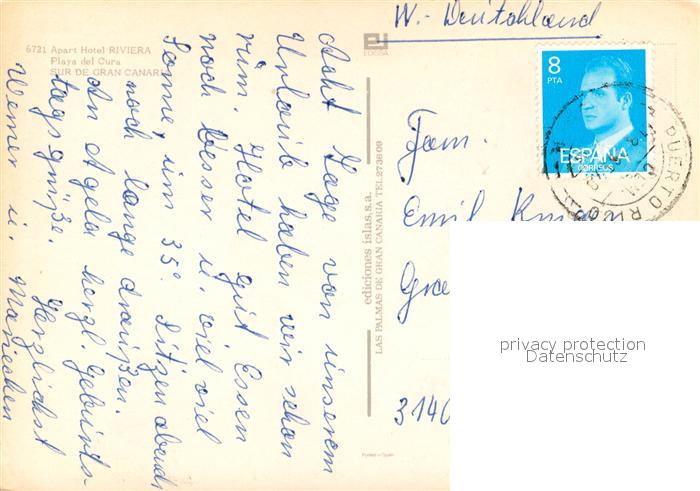 W.-Deutschland
6721 Apart Hotel RIVIERA
Playa del Cura
SUR DE GRAN CANARIA
Acht Tage von unserem
Urlaub haben wir schon
rum. Hotel gut Essen
noch besser u. viel viel
Sonne, um 35°. Sitzen abends
noch lange draußen.
An Agela herzl. Geburts-
tagsgrüße.
Herzlichst
Werner u. Mariechen
ediciones islas, s.a.
LAS PALMAS DE GRAN CANARIA TEL. 273609
Printed in Spain
8
PTA
ESPAÑA
CORREOS
PUERTO RICO
Fam.
Emil
3140
privacy protection
Datenschutz